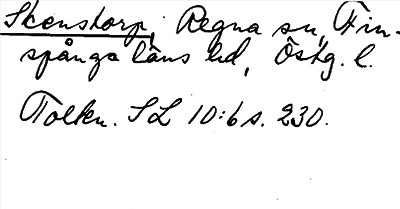 Skenstorp, Regna sn, Fin-
spånga läns hd, Östg. l.
Tolkn. SL 10:6 s. 230.